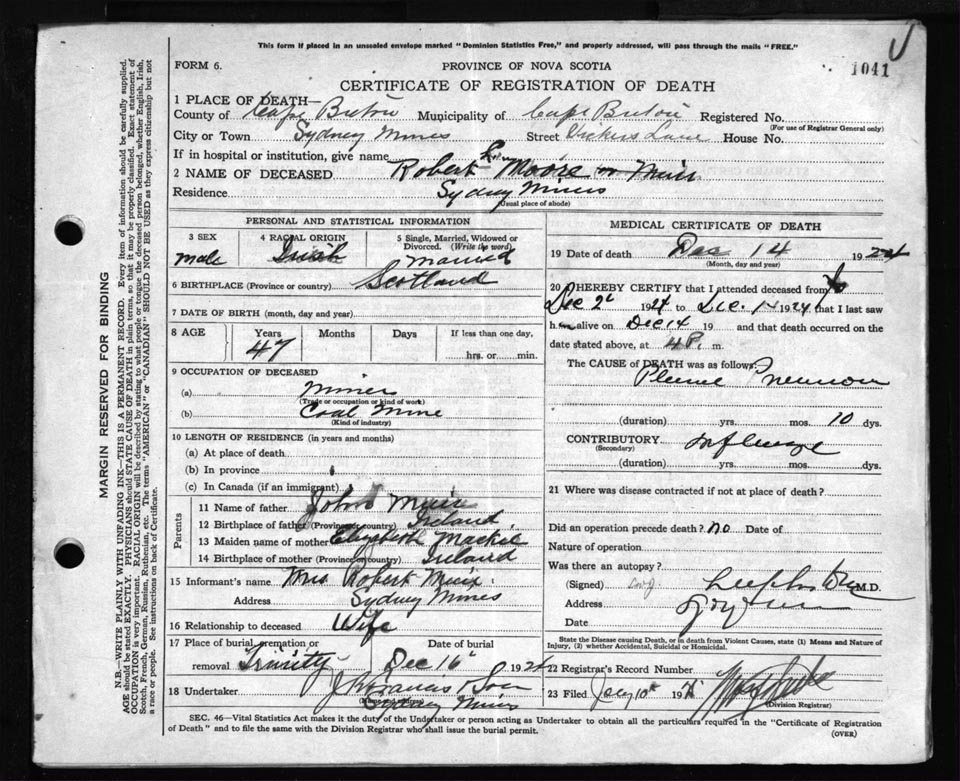 This form if placed in an unsealed envelope marked "Dominion Statistics Free," and properly addressed, will pass through the mails "FREE."
FORM 6.
PROVINCE OF NOVA SCOTIA
1041
CERTIFICATE OF REGISTRATION OF DEATH
1 PLACE OF DEATH—
County of Cape Breton Municipality of Cape Breton Registered No.
(For use of Registrar General only)
City or Town Sydney Mines Street Lane House No.
If in hospital or institution, give name
2 NAME OF DECEASED Robert Moore or Muir
Residence Sydney Mines
(Usual place of abode)
PERSONAL AND STATISTICAL INFORMATION
3 SEX
male
4 RACIAL ORIGIN
Irish
5 Single, Married, Widowed or Divorced. (Write the word)
Married
6 BIRTHPLACE (Province or country) Scotland
7 DATE OF BIRTH (month, day and year)
8 AGE Years Months Days If less than one day,
47
hrs. or min.
9 OCCUPATION OF DECEASED
(a) Miner
(Trade or occupation or kind of work)
(b) Coal Mine
(Kind of industry)
10 LENGTH OF RESIDENCE (in years and months)
(a) At place of death
(b) In province
(c) In Canada (if an immigrant)
Parents
11 Name of father John Muir
12 Birthplace of father (Province or country) Ireland
13 Maiden name of mother Elizabeth Mackie
14 Birthplace of mother (Province or country) Ireland
15 Informant's name Mrs Robert Muir
Address Sydney Mines
16 Relationship to deceased Wife
17 Place of burial, cremation or removal Trinity
Date of burial Dec 16 1924
18 Undertaker J Francis & Son
Sydney Mines
MEDICAL CERTIFICATE OF DEATH
19 Date of death Dec 14 1924
(Month, day and year)
20 I HEREBY CERTIFY that I attended deceased from
Dec 2 1924 to Dec. 14 1924 that I last saw
h m alive on Dec 14 19 and that death occurred on the
date stated above, at 4 P. m.
The CAUSE OF DEATH was as follows:
(duration) yrs. mos. 10 dys.
CONTRIBUTORY Influenza
(Secondary)
(duration) yrs. mos. dys.
21 Where was disease contracted if not at place of death?
Did an operation precede death? no Date of
Nature of operation
Was there an autopsy?
(Signed) M.D.
Address
Date
State the Disease causing Death, or in death from Violent Causes, state (1) Means and Nature of Injury, (2) whether Accidental, Suicidal or Homicidal.
22 Registrar's Record Number
23 Filed 19
(Division Registrar)
SEC. 46—Vital Statistics Act makes it the duty of the Undertaker or person acting as Undertaker to obtain all the particulars required in the "Certificate of Registration
of Death" and to file the same with the Division Registrar who shall issue the burial permit.
(OVER)
MARGIN RESERVED FOR BINDING
N.B.—WRITE PLAINLY WITH UNFADING INK—THIS IS A PERMANENT RECORD. Every item of information should be carefully supplied.
AGE should be stated EXACTLY. PHYSICIANS should STATE CAUSE OF DEATH in plain terms, so that it may be properly classified. Exact statement of
OCCUPATION is very important. RACIAL ORIGIN will be described by stating to what people or tongue the deceased person belonged, whether English, Irish,
Scotch, French, German, Russian, Ruthenian, etc. The terms "AMERICAN" or "CANADIAN" SHOULD NOT BE USED as they express citizenship but not
a race or people. See instructions on back of Certificate.